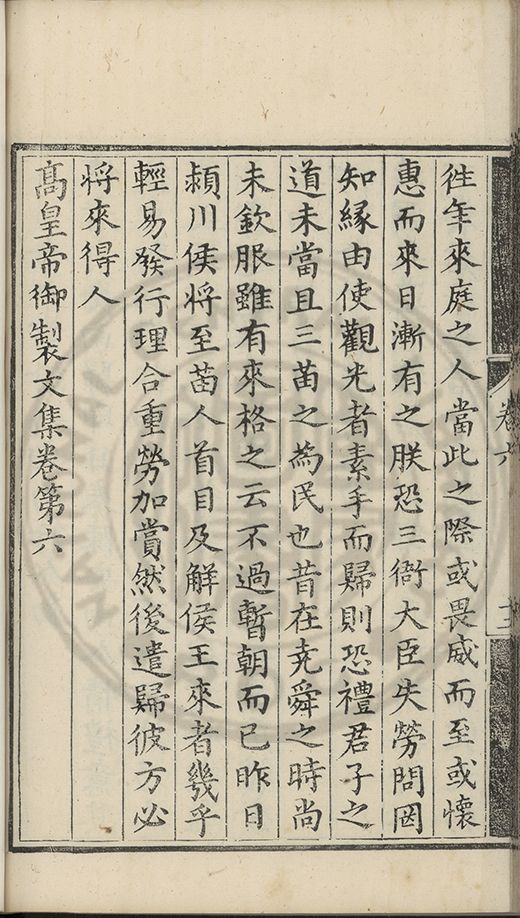 徃年來庭之人當此之際或畏威而至或懷
惠而來日漸有之朕恐三衙大臣失勞問罔
知緣由使觀光者素手而歸則恐禮君子之
道未當且三苗之為民也昔在尭舜之時尚
未欽服雖有來格之云不過暫朝而已昨日
潁川侯將至苗人首目及觧侯王來者幾乎
輕易發行理合重勞加賞然後遣歸彼方必
將來得人
髙皇帝御製文集卷第六
卷六